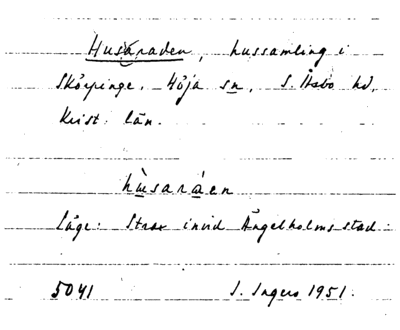 Husaraden, hussamling i
Skörpinge, Höja sn, S. Åsbo hd,
Krist. län.
hùsaráen
Läge: Strax invid Ängelholms stad.
5041 I. Ingers 1951.